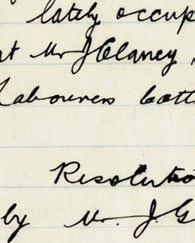 lately occup
at Mr J Clancy,
Labourers cott
Resolutio
by Mr. J. G